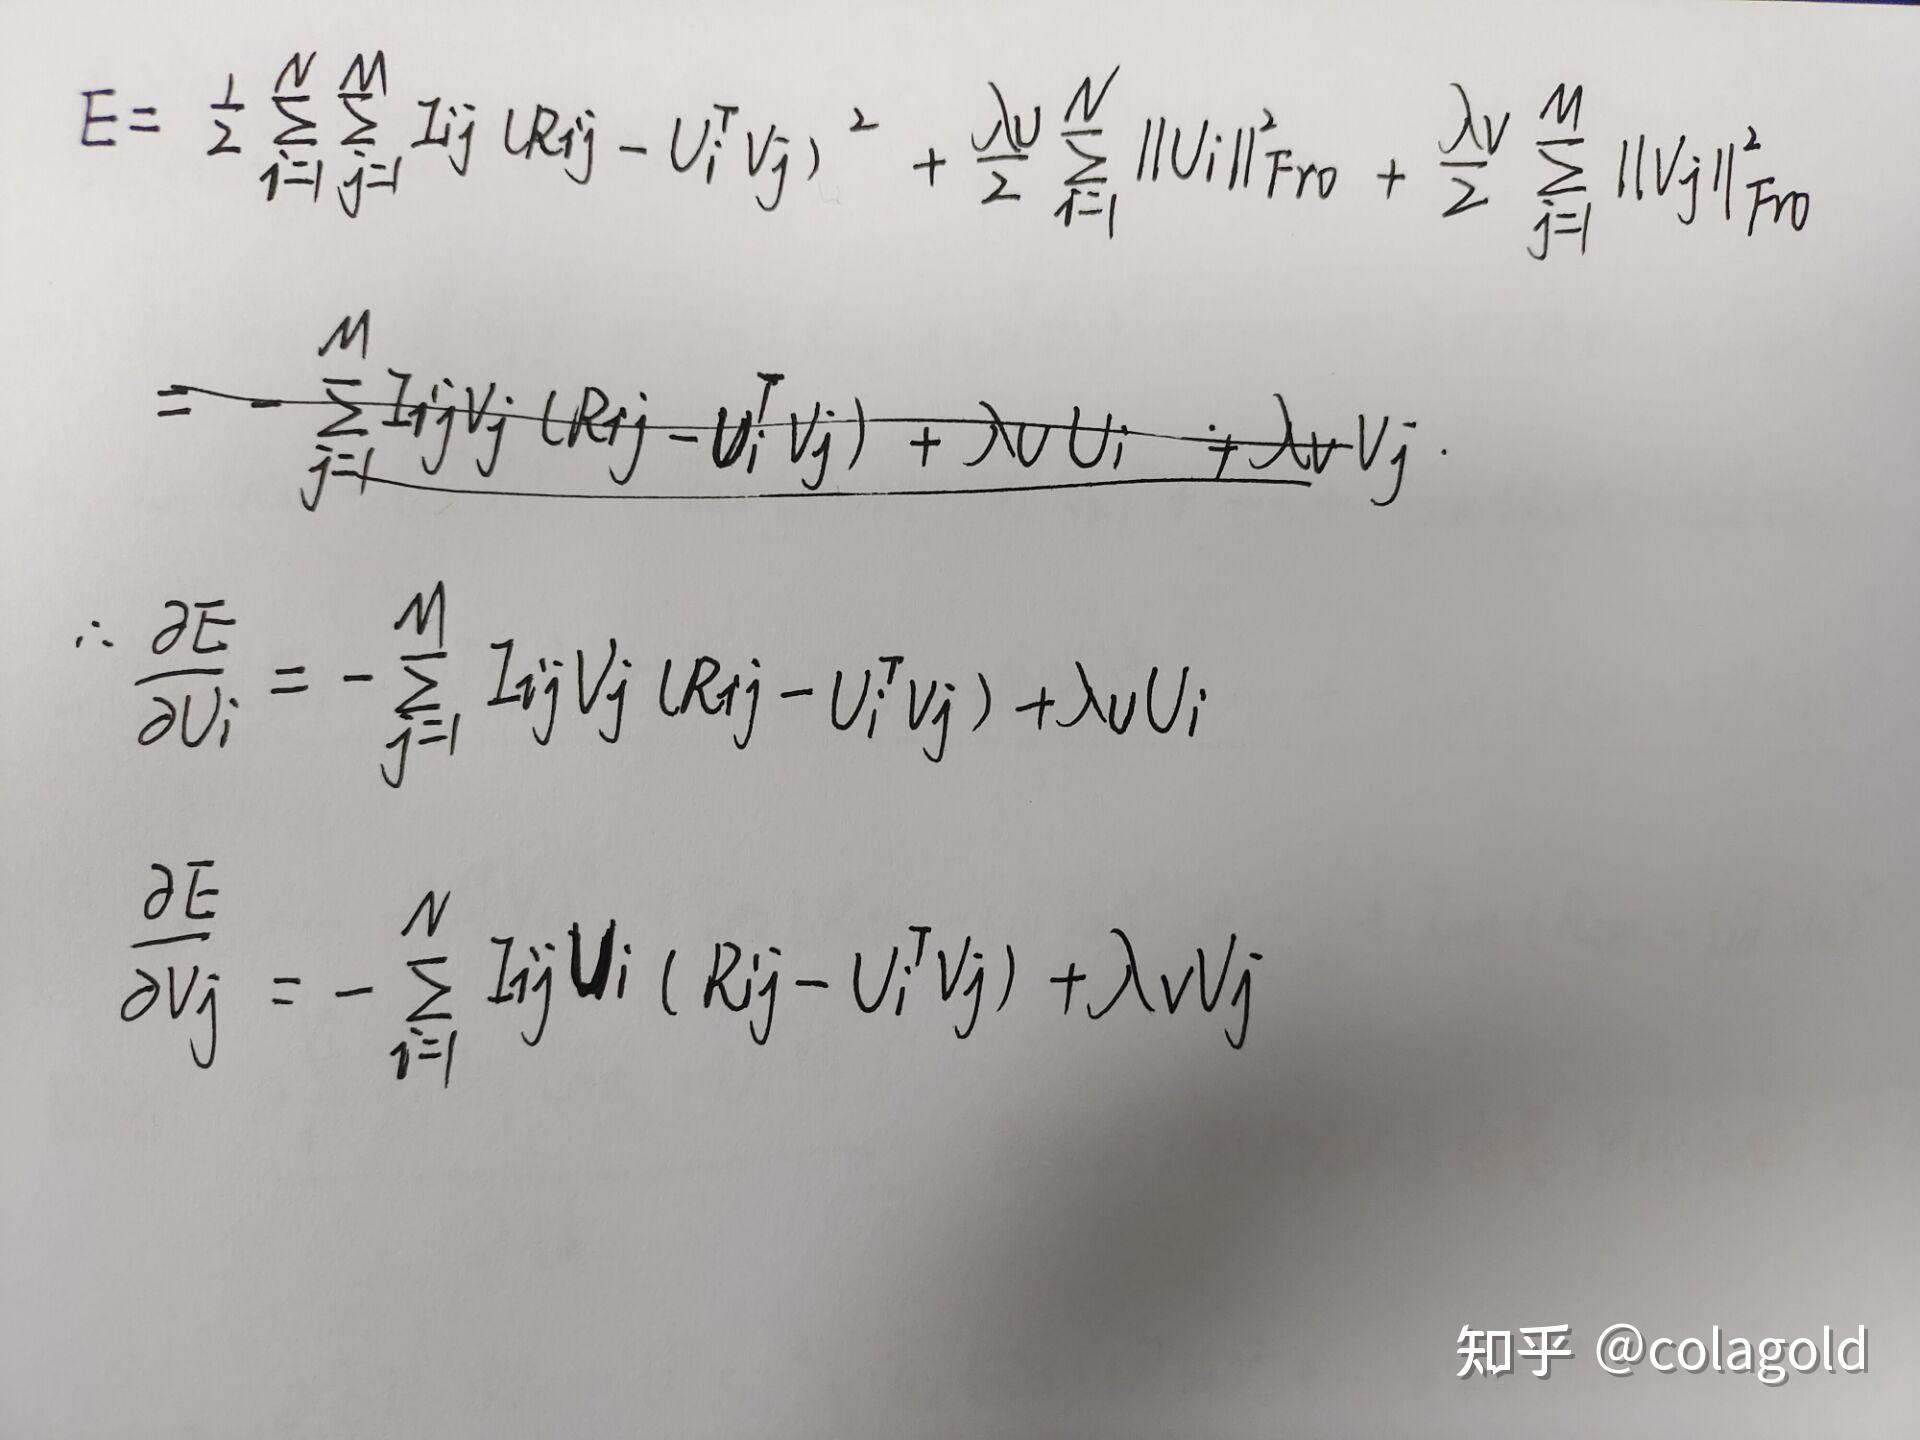 E = \frac{1}{2} \sum_{i=1}^{N} \sum_{j=1}^{M} I_{ij} (R_{ij} - U_i^T V_j)^2 + \frac{\lambda_U}{2} \sum_{i=1}^{N} \|U_i\|_{Fro}^2 + \frac{\lambda_V}{2} \sum_{j=1}^{M} \|V_j\|_{Fro}^2
= - \sum_{j=1}^{M} I_{ij} V_j (R_{ij} - U_i^T V_j) + \lambda_U U_i + \lambda_V V_j .
∴ \frac{\partial E}{\partial U_i} = - \sum_{j=1}^{M} I_{ij} V_j (R_{ij} - U_i^T V_j) + \lambda_U U_i
\frac{\partial E}{\partial V_j} = - \sum_{i=1}^{N} I_{ij} U_i (R_{ij} - U_i^T V_j) + \lambda_V V_j
知乎 @colagold